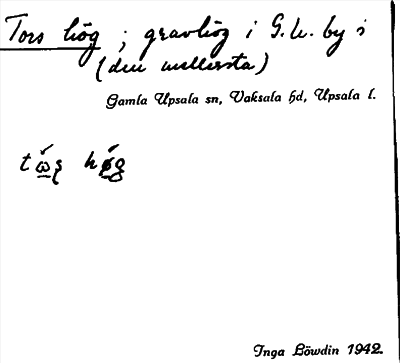 Tors hög ; gravhög i G.U. by i
(den mellersta)
Gamla Upsala sn, Vaksala hd, Upsala l.
Inga Löwdin 1942.